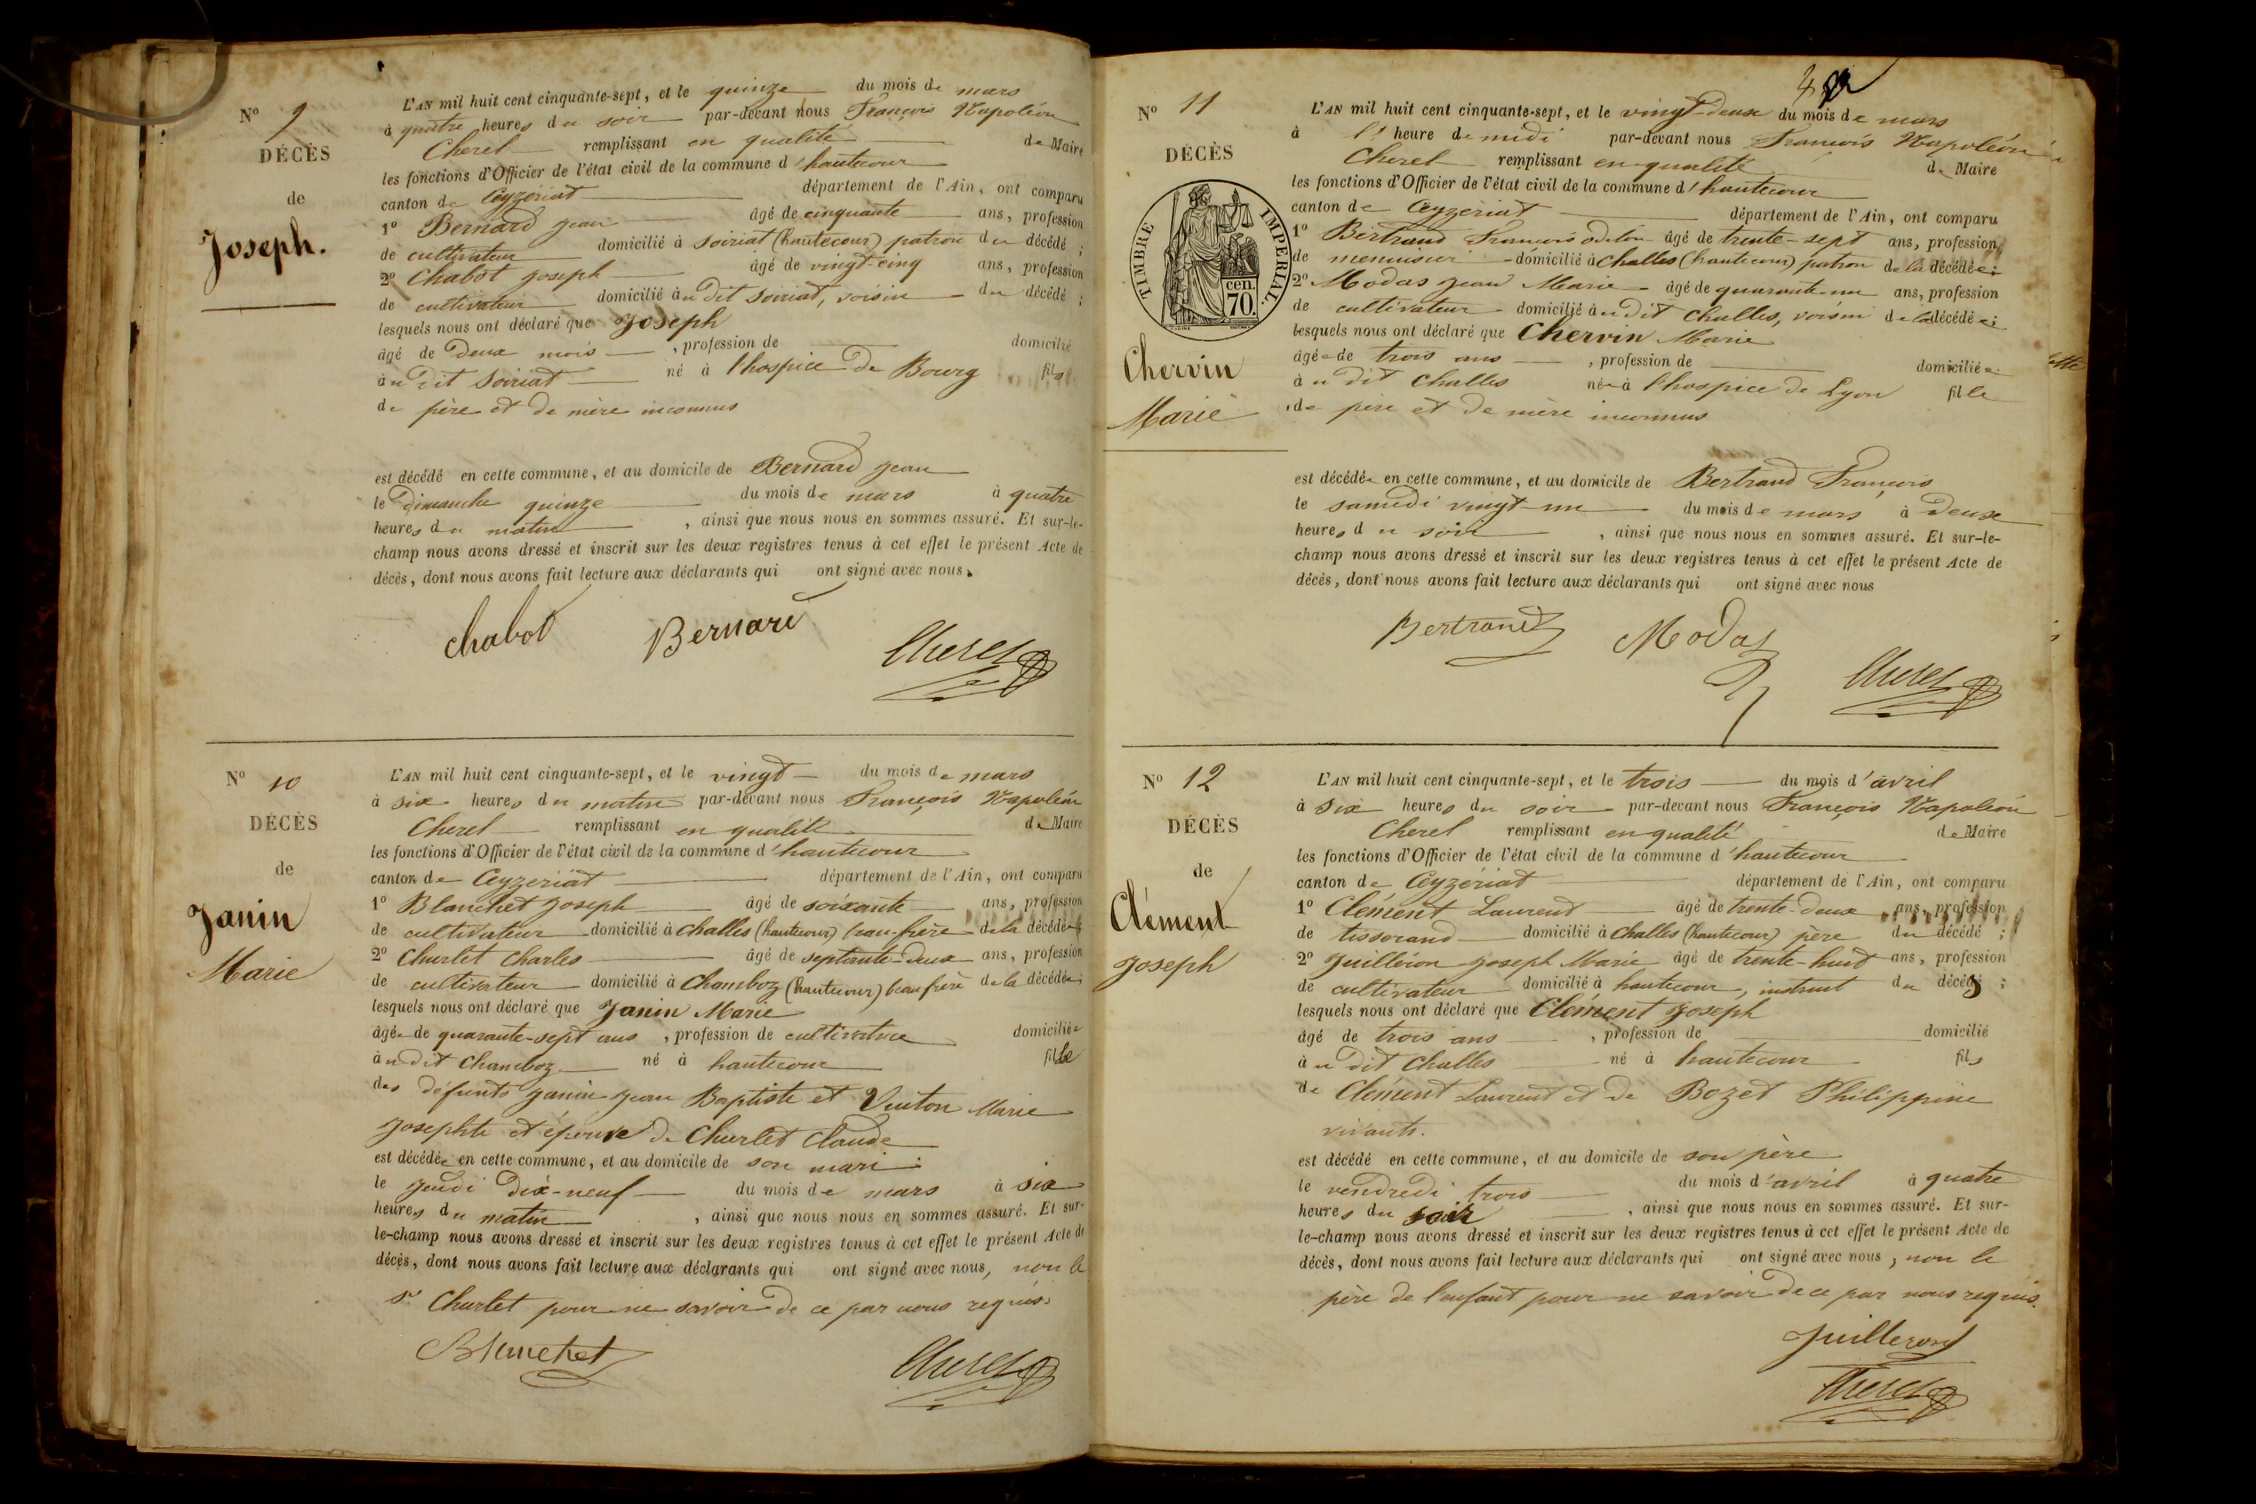 Nº 9
DÉCÈS
de
Joseph.
L'AN mil huit cent cinquante-sept, et le quinze du mois de mars
à quatre heures du soir par-devant nous François Napoléon
Cherel remplissant en qualité de Maire
les fonctions d'Officier de l'état civil de la commune d'hautecour
canton de Ceyzériat département de l'Ain, ont comparu
1º Bernard Jean âgé de cinquante ans, profession
de cultivateur domicilié à Soiriat (hautecour) patron du décédé ;
2º Chabot Joseph âgé de vingt-cinq ans, profession
de cultivateur domicilié au dit Soiriat, voisin du décédé ;
lesquels nous ont déclaré que Joseph
âgé de deux mois , profession de domicilié
au dit Soiriat né à l'hospice de Bourg fils
de père et de mère inconnus
est décédé en cette commune, et au domicile de Bernard Jean
le Dimanche quinze du mois de mars à quatre
heures du matin , ainsi que nous nous en sommes assuré. Et sur-le-
champ nous avons dressé et inscrit sur les deux registres tenus à cet effet le présent Acte de
décès, dont nous avons fait lecture aux déclarants qui ont signé avec nous.
Chabot Bernard Cherel
Nº 10
DÉCÈS
de
Janin
Marie
L'AN mil huit cent cinquante-sept, et le vingt du mois de mars
à six heures du matin par-devant nous François Napoléon
Cherel remplissant en qualité de Maire
les fonctions d'Officier de l'état civil de la commune d'hautecour
canton de Ceyzériat département de l'Ain, ont comparu
1º Blanchet Joseph âgé de soixante ans, profession
de cultivateur domicilié à Challes (hautecour) beau-frère de la décédée
2º Churlet Charles âgé de septante-deux ans, profession
de cultivateur domicilié à Chamboz (hautecour) beau frère de la décédée ;
lesquels nous ont déclaré que Janin Marie
âgée de quarante-sept ans , profession de cultivatrice domiciliée
au dit Chamboz né à hautecour fille
des défunts Janin Jean Baptiste et Vuiton Marie
Josephte et épouse de Churlet Claude
est décédée en cette commune, et au domicile de son mari
le jeudi dix-neuf du mois de mars à six
heures du matin , ainsi que nous nous en sommes assuré. Et sur-
le-champ nous avons dressé et inscrit sur les deux registres tenus à cet effet le présent Acte de
décès, dont nous avons fait lecture aux déclarants qui ont signé avec nous, non le
Sr Churlet pour ne savoir de ce par nous requis.
Blanchet Cherel
Nº 11
DÉCÈS
TIMBRE IMPERIAL.
cen.
70.
Chervin
Marie
L'AN mil huit cent cinquante-sept, et le vingt-deux du mois de mars
à l' heure de midi par-devant nous François Napoléon
Cherel remplissant en qualité de Maire
les fonctions d'Officier de l'état civil de la commune d'hautecour
canton de Ceyzériat département de l'Ain, ont comparu
1º Bertrand François odilon âgé de trente-sept ans, profession
de menuisier domicilié à Challes (hautecour) patron de la décédée ;
2º Modas Jean Marie âgé de quarante-un ans, profession
de cultivateur domicilié au dit Challes, voisin de la décédée ;
lesquels nous ont déclaré que Chervin Marie
âgée de trois ans , profession de domiciliée
au dit Challes née à l'hospice de Lyon fille
de père et de mère inconnus
est décédée en cette commune, et au domicile de Bertrand François
le samedi vingt-un du mois de mars à deux
heures du soir , ainsi que nous nous en sommes assuré. Et sur-le-
champ nous avons dressé et inscrit sur les deux registres tenus à cet effet le présent Acte de
décès, dont nous avons fait lecture aux déclarants qui ont signé avec nous
Bertrand Modas Cherel
Nº 12
DÉCÈS
de
Clément
Joseph
L'AN mil huit cent cinquante-sept, et le trois du mois d'avril
à six heures du soir par-devant nous François Napoléon
Cherel remplissant en qualité de Maire
les fonctions d'Officier de l'état civil de la commune d'hautecour
canton de Ceyzériat département de l'Ain, ont comparu
1º Clément Laurent âgé de trente-deux ans, profession
de tisserand domicilié à Challes (hautecour) père du décédé ;
2º Juilleron Joseph Marie âgé de trente-huit ans, profession
de cultivateur domicilié à hautecour, instruit du décès ;
lesquels nous ont déclaré que Clément Joseph
âgé de trois ans , profession de domicilié
au dit Challes né à hautecour fils
de Clément Laurent et de Bozet Philippine
vivants.
est décédé en cette commune, et au domicile de son père
le vendredi trois du mois d'avril à quatre
heures du soir , ainsi que nous nous en sommes assuré. Et sur-
le-champ nous avons dressé et inscrit sur les deux registres tenus à cet effet le présent Acte de
décès, dont nous avons fait lecture aux déclarants qui ont signé avec nous, non le
père de l'enfant pour ne savoir de ce par nous requis.
Juilleron
Cherel